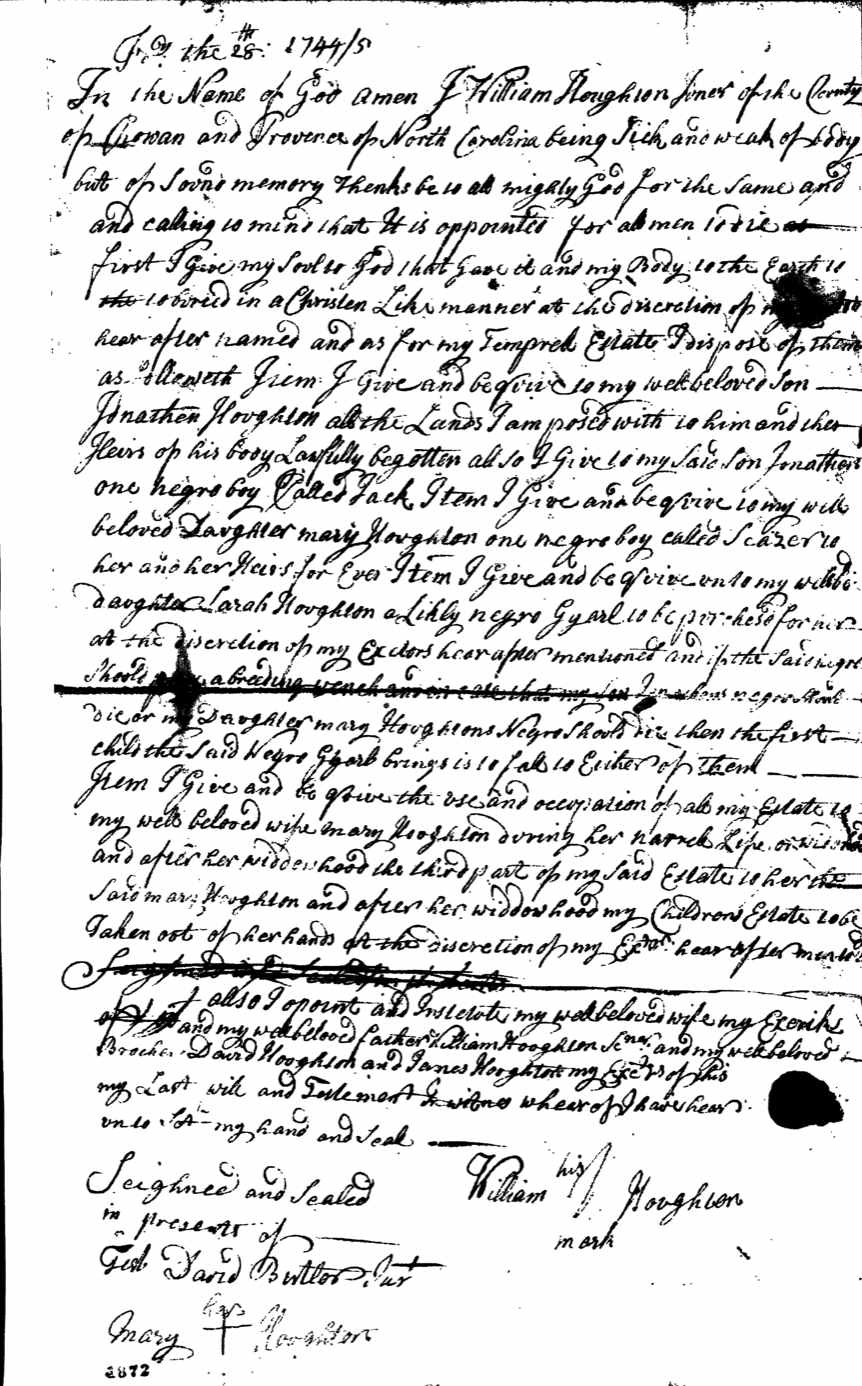 the 28th: 1744/5
In the Name of God amen I William Houghton Joner of the County
of Chowan and Provence of North Carolina being Sick and weak of body
but of Sound memory Thenks be to all mighty God for the Same and
and calling to mind that It is oppointed for all men to die as
first I Give my Soul to God that Gave it and my Body to the Earth to
the to buried in a Christen Like manner at the discretion of my
hear after named and as for my Temprell Estate I dispose of them
as followeth Item I Give and beqvive to my well beloved Son
Jonathen Houghton all the Lands I am posed with to him and ther
Heirs of his body Lawfully begotten allso I Give to my Said Son Jonathen
one negro boy Called Jack Item I Give and beqvive to my well
beloved Davghter mary Houghton one negro boy called Seazer to
her and her Heirs for Ever Item I Give and beqvive vnto my wellbe
davghter Sarah Houghton a Likly negro Gyarl to be pvrchesd for her
at the discretion of my Exctors hear after mentioned and if the Said negro
Shoold a breading wench and in case that my Son Jonathens negro Shoul
die or my Davghter mary Hovghtons Negro Shoold die then the first
child the Said Negro Gyarl brings is to fall to Either of them
Item I Give and beqvive the vse and occvpation of all my Estate to
my well beloved wife mary Hovghton dvring her narrell Life or
and after her widdowhood the third part of my Said Estate to her the
Said mary Hovghton and after her widdowhood my Childrens Estate to be
Taken oot of her hands at the discretion of my Extrs. hear after
allso I opoint and Instetote my well beloved wife my Exeriks
and my well beloved father William Hooghton Senr. and my well beloved
Brother David Hooghton and James Hooghton my Exctrs of this
my Last will and Testement In witnes whear of I have hear
vn to Set my hand and Seal
Seighned and Sealed
in presents of
William his Hovghton
mark
Test David Butler Jur
Mary hers Hovghton
1872